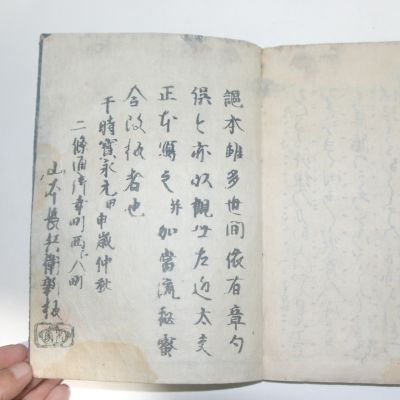 謳本雖多世間依有章句
誤今亦以観世左近太夫
正本写之并加当流秘密
令改板者也
于時寳永元甲申歳仲秋
二條通御幸町西へ入町
山本長兵衛新板